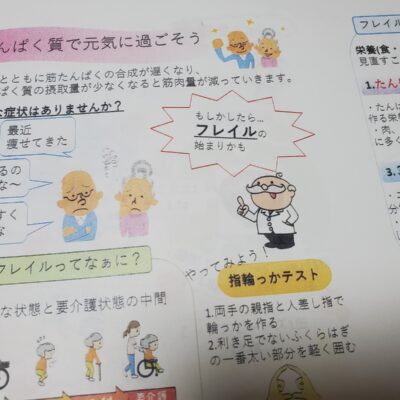 んぱく質で元気に過ごそう
とともに筋たんぱくの合成が遅くなり、
ぱく質の摂取量が少なくなると筋肉量が減っていきます。
な症状はありませんか?
最近
痩せてきた
るの
な～
すく
な
もしかしたら…
フレイルの
始まりかも
フレイルってなぁに?
な状態と要介護状態の中間
やってみよう!
指輪っかテスト
1.両手の親指と人差し指で
輪っかを作る
2.利き足でないふくらはぎ
の一番太い部分を軽く囲む
フレイル
栄養(食・
見直すこ
1.たん
・たんぱ
作る栄養
・肉、
に多く
3.